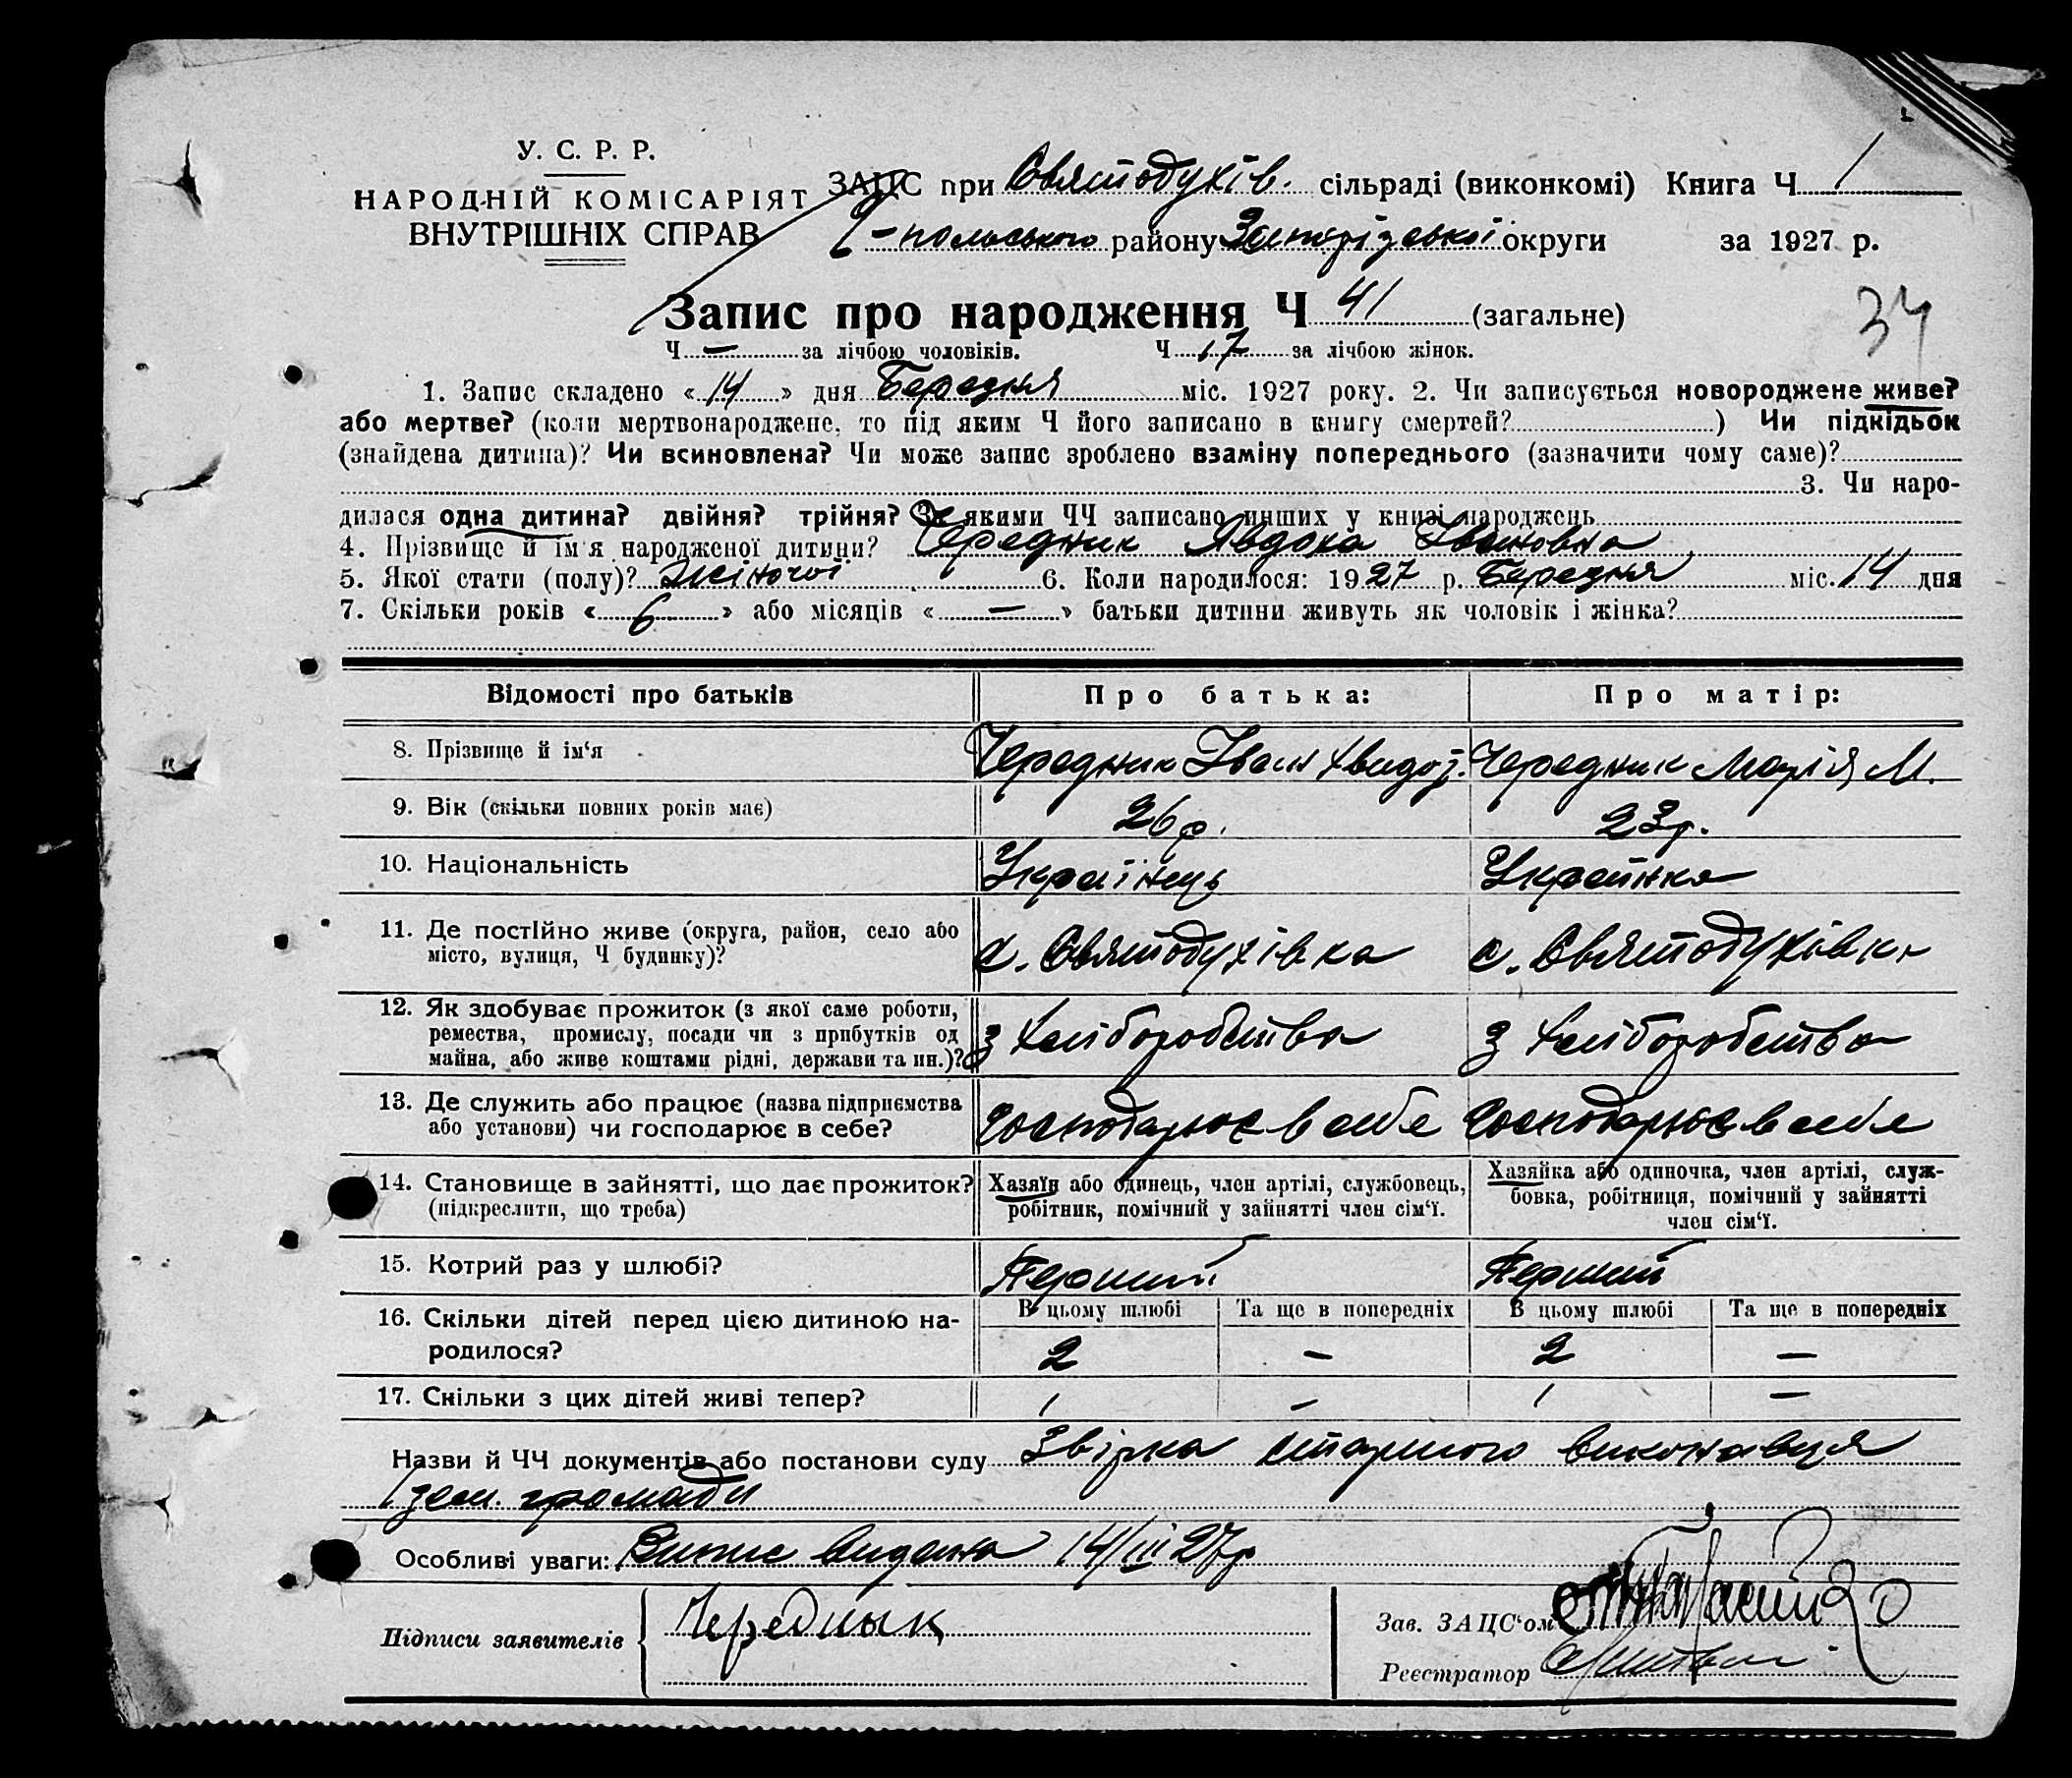 У. С. Р. Р.
НАРОДНІЙ КОМІСАРІЯТ
ВНУТРІШНІХ СПРАВ
ЗАЦС при Святодухів. сільраді (виконкомі) Книга Ч 1
-польського району Запорізської округи за 1927 р.
Запис про народження Ч 41 (загальне)
34
Ч — за лічбою чоловіків. Ч 17 за лічбою жінок.
1. Запис складено «14» дня Березня міс. 1927 року. 2. Чи записується новороджене живе?
або мертве? (коли мертвонароджене, то під яким Ч його записано в книгу смертей? ) Чи підкідьок
(знайдена дитина)? Чи всиновлена? Чи може запис зроблено взаміну попереднього (зазначити чому саме)?
3. Чи наро-
дилася одна дитина? двійня? трійня? За якими ЧЧ записано инших у книзі народжень
4. Прізвище й ім'я народженої дитини? Чередник Явдоха Івановна
5. Якої стати (полу)? Жіночої 6. Коли народилося: 1927 р. Березня міс. 14 дня
7. Скільки років «6» або місяців «—» батьки дитини живуть як чоловік і жінка?
Відомості про батьків Про батька: Про матір:
8. Прізвище й ім'я Чередник Іван Хведор. Чередник Марія М.
9. Вік (скільки повних років має) 26 р. 23 р.
10. Національність Українець Українка
11. Де постійно живе (округа, район, село або
місто, вулиця, Ч будинку)? с. Святодухівка с. Святодухівка
12. Як здобуває прожиток (з якої саме роботи,
ремества, промислу, посади чи з прибутків од
майна, або живе коштами рідні, держави та ин.)? з хліборобства з хліборобства
13. Де служить або працює (назва підприємства
або установи) чи господарює в себе? Господарює в себе Господарює в себе
14. Становище в зайнятті, що дає прожиток?
(підкреслити, що треба)
Хазяїн або одинець, член артілі, службовець,
робітник, помічний у зайнятті член сім'ї.
Хазяйка або одиночка, член артілі, служ-
бовка, робітниця, помічний у зайнятті
член сім'ї.
15. Котрий раз у шлюбі? Перший Перший
16. Скільки дітей перед цією дитиною на-
родилося?
В цьому шлюбі Та ще в попередніх В цьому шлюбі Та ще в попередніх
2 — 2 —
17. Скільки з цих дітей живі тепер? 1 — 1 —
Назви й ЧЧ документів або постанови суду Звірка старшого виконавця
зем. громади
Особливі уваги: Витис видана 14/III 27р
Підписи заявителів Чередных
Зав. ЗАЦС'ом
Реєстратор